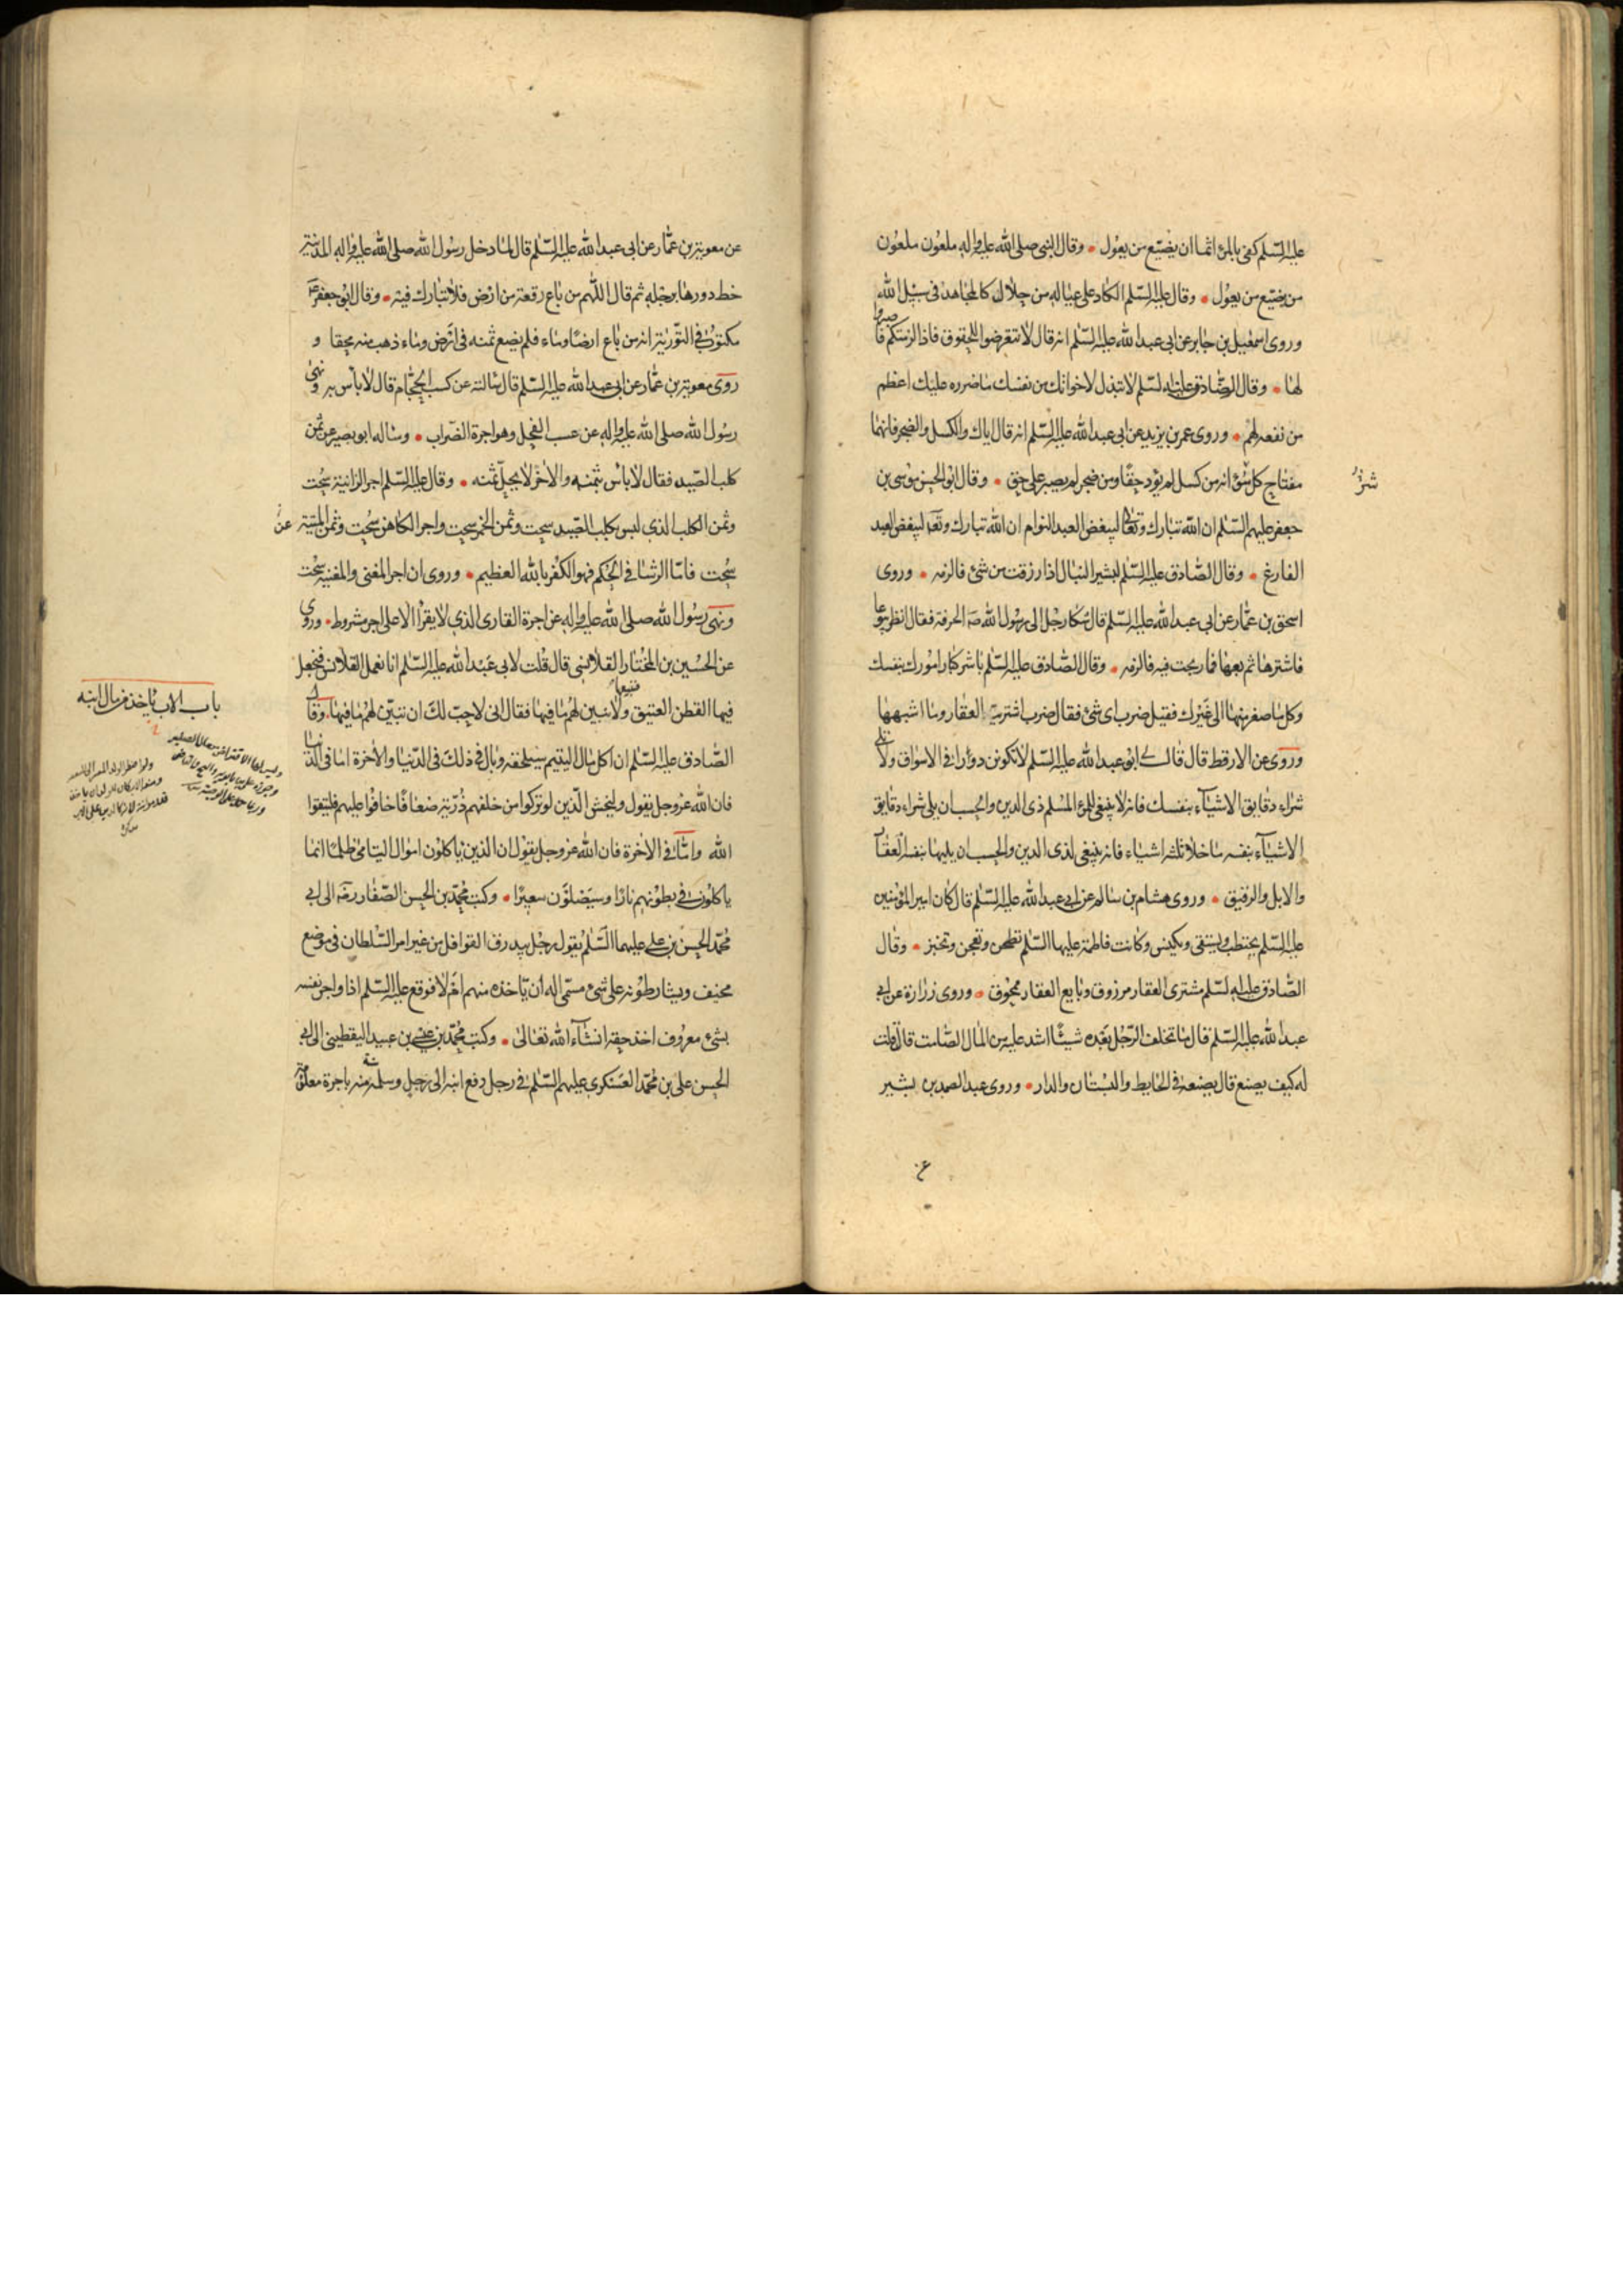 عليه السلم كفى بالمرء اثما ان يضيّع من يعول وقال النبى صلى الله عليه واله ملعون ملعون
من يضيّع من يعول وقال عليه السلم الكاد على عياله من حلال كالمجاهد فى سبيل الله
وروى اسمعيل بن جابر عن ابى عبد الله عليه السلم انه قال لا تتعرضوا للحقوق فاذا لزمتكم فاصبروا
لها وقال الصادق عليه السلم لا تبذل لاخوانك من نفسك ما ضرره عليك اعظم
من نفعه لهم وروى عمر بن يزيد عن ابى عبد الله عليه السلم انه قال اياك والكسل والضجر فانهما
مفتاح كل سوء انه من كسل لم يؤد حقا ومن ضجر لم يصبر على حق وقال ابو الحسن موسى بن
جعفر عليهم السلم ان الله تبارك وتعالى ليبغض العبد النوام ان الله تبارك وتعه ليبغض العبد
الفارغ وقال الصادق عليه السلم لبشير النبال اذا رزقت من شئ فالزمه وروى
اسحق بن عمار عن ابى عبد الله عليه السلم قال شكا رجل الى رسول الله صه الحرفة فقال انظر بيوعا
فاشترها ثم بعها فما ربحت فيه فالزمه وقال الصادق عليه السلم باشر كبار امورك بنفسك
وكل ما صغر منها الى غيرك فقيل ضرب اى شئ فقال ضرب اشرية العقار وما اشبهها
وروى عن الارقط قال قال لى ابو عبد الله عليه السلم لا تكونن دوارا فى الاسواق ولا تلى
شراء دقايق الاشياء بنفسك فانه لا ينبغى للمرء المسلم ذى الدين والحسب ان يلى شراء دقايق
الاشياء بنفسه ما خلا ثلثه اشياء فانه ينبغى لذى الدين والحسب ان يليها بنفسه العقار
والابل والرقيق وروى هشام بن سالم عن ابى عبد الله عليه السلم قال كان امير المؤمنين
عليه السلم يحتطب ويستقى ويكنس وكانت فاطمة عليها السلم تطحن وتعجن وتخبز وقال
الصادق عليه السلم مشترى العقار مرزوق وبايع العقار ممحوق وروى زرارة عن ابى
عبد الله عليه السلم قال ما تخلف الرجل بعده شيئا اشد عليه من المال الصامت قال قلت
له كيف يصنع قال يضعه فى الحايط والبستان والدار وروى عبد الصمد بن بشير
عن معوية بن عمار عن ابى عبد الله عليه السلم قال لما دخل رسول الله صلى الله عليه واله المدينة
خط دورها برجله ثم قال اللهم من باع رقعة من ارض فلا تبارك فيه وقال ابو جعفر ع
مكتوب فى التورية انه من باع ارضا وماء فلم يضع ثمنه فى ارض وماء ذهب منه محقا و
روى معوية بن عمار عن ابى عبد الله عليه السلم قال سالته عن كسب الحجام قال لا باس به ونهى
رسول الله صلى الله عليه واله عن عسب الفحل وهو اجرة الضراب وساله ابو بصير عن ثمن
كلب الصيد فقال لا باس بثمنه والاخر لا يحل ثمنه وقال عليه السلم اجر الزانية سحت
وثمن الكلب الذى ليس بكلب الصيد سحت وثمن الخمر سحت واجر الكاهن سحت وثمن الميتة
سحت فاما الرشا فى الحكم فهو الكفر بالله العظيم وروى ان اجر المغنى والمغنية سحت
ونهى رسول الله صلى الله عليه واله عن اجرة القارى الذى لا يقرأ الا على اجر مشروط وروى
عن الحسين بن المختار القلانسى قال قلت لابى عبد الله عليه السلم انا نعمل القلانس فنجعل
فيها القطن العتيق فنبيعها ولا نبين لهم ما فيها فقال انى لاحب لك ان تبين لهم ما فيها وقال
الصادق عليه السلم ان اكل مال اليتيم سيلحقه وبال ذلك فى الدنيا والاخرة اما فى الدنيا
فان الله عز وجل يقول وليخش الذين لو تركوا من خلفهم ذرية ضعافا خافوا عليهم فليتقوا
الله واما فى الاخرة فان الله عز وجل يقول ان الذين ياكلون اموال اليتامى ظلما انما
ياكلون فى بطونهم نارا وسيصلون سعيرا وكتب محمد بن الحسن الصفار رضه الى ابى
محمد الحسن بن على عليهما السلم يقول رجل يبدرق القوافل من غير امر السلطان فى موضع
مخيف ويشارطونه على شئ مسمى اله ان ياخذه منهم ام لا فوقع عليه السلم اذا واجر نفسه
بشئ معروف اخذ حقه انشاء الله تعالى وكتب محمد بن عيسى بن عبيد اليقطينى الى ابى
الحسن على بن محمد العسكرى عليهم السلم فى رجل دفع ابنه الى رجل وسلمه منه سنة باجرة معلومة
باب الاب ياخذ من مال ابنه